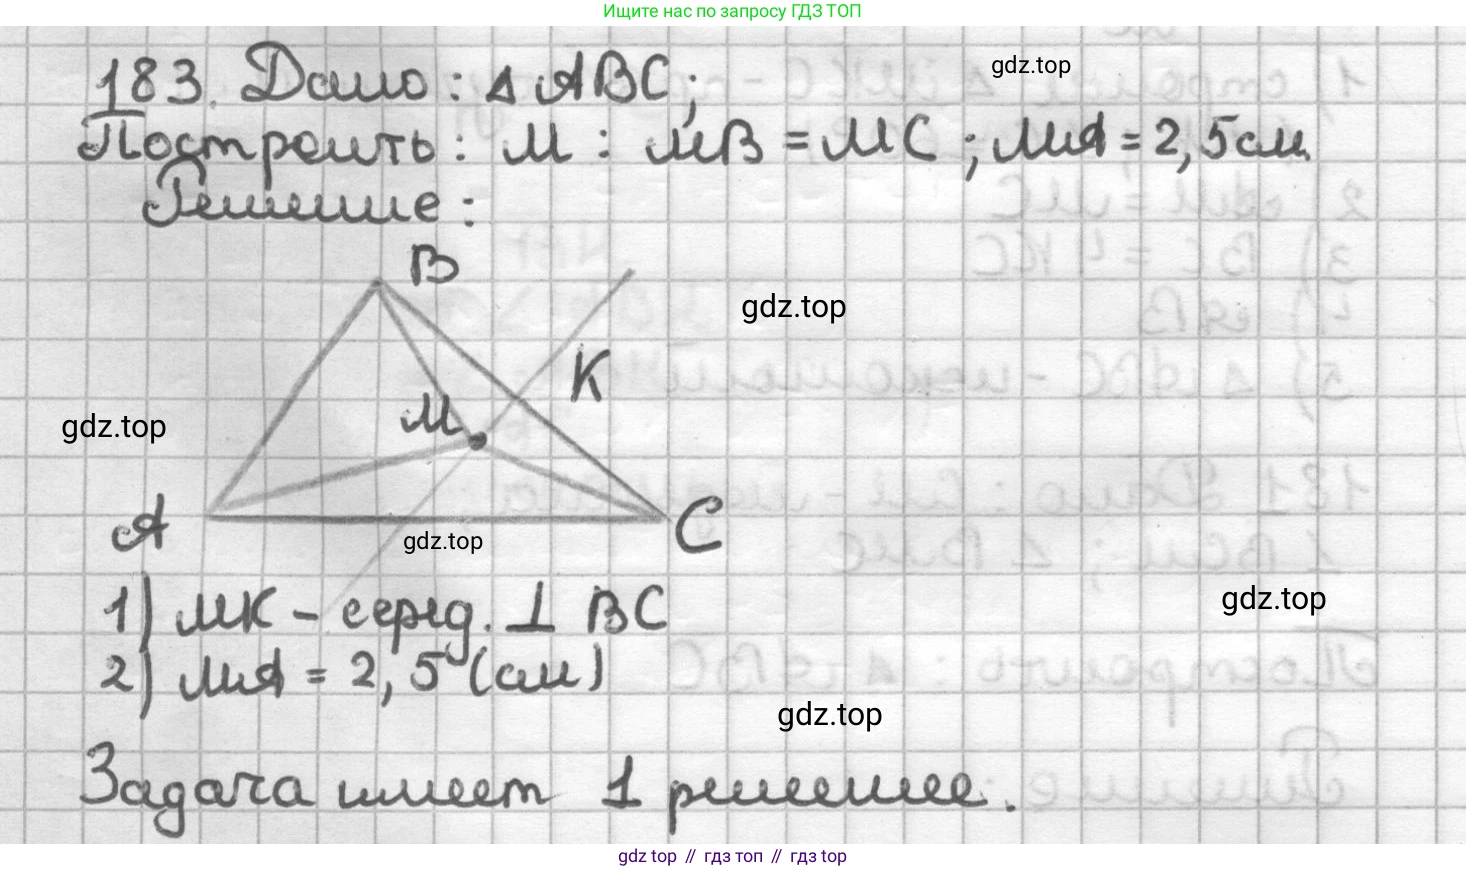 Ищите нас по запросу ГДЗ ТОП
183. Дано: △ ABC;
gdz.top
Построить: M : MB = MC ; MA = 2,5 см
Решение:
B
gdz.top
K
M
gdz.top
A
C
gdz.top
1) MK - серед. ⊥ BC
gdz.top
2) MA = 2,5 (см)
gdz.top
Задача имеет 1 решение.
gdz top // гдз топ // гдз top